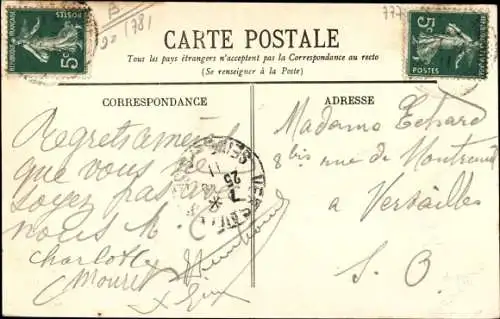 B
2 1781
777
5c
POSTES
5c
POSTES
CARTE POSTALE
Tous les pays étrangers n'acceptent pas la Correspondance au recto
(Se renseigner à la Poste)
CORRESPONDANCE
ADRESSE
que vous ne
soyez pas
nous
Charlotte
Mouret
25
7
Madame
8 bis rue de Montreuil
a Versailles
S. O.